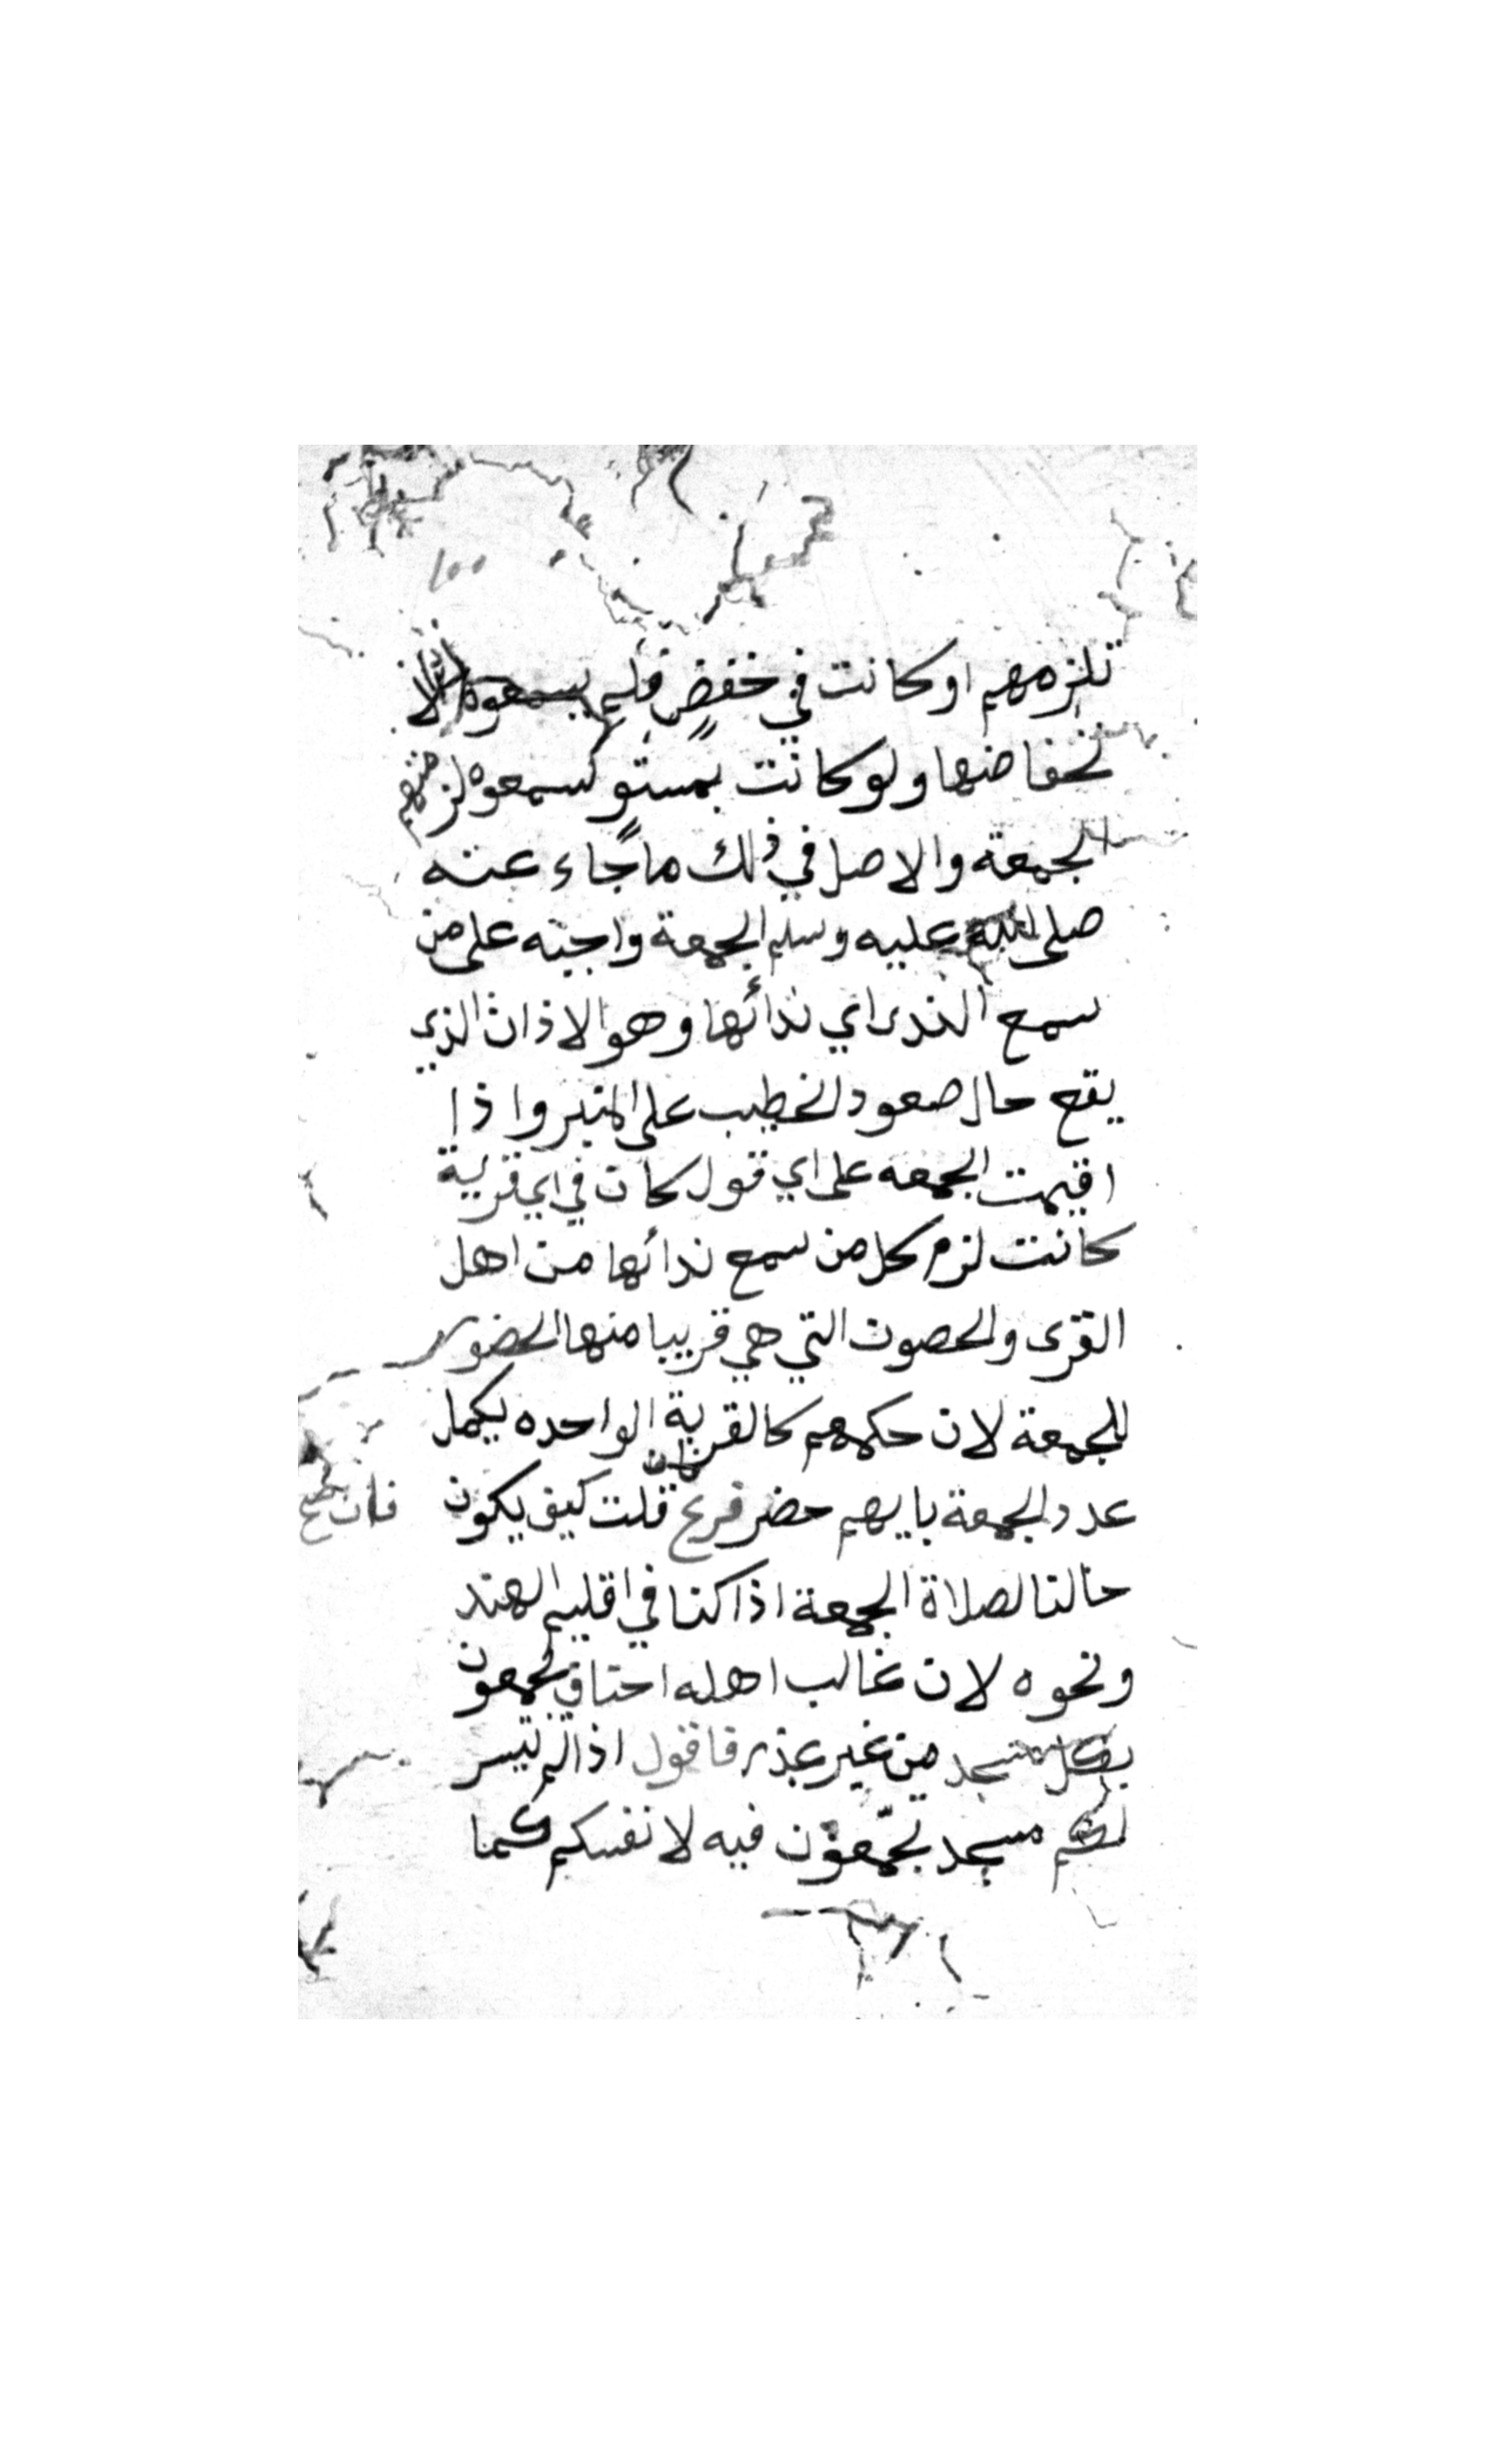 تلزمهم او كانت في خفضٍ فلم يسمعوه لا
نخفاضها ولو كانت بمستوٍ لسمعوه لزمتهم
الجمعة والاصل في ذلك ما جاء عنه
صلى الله عليه وسلم الجمعة واجبه على من
سمع الندى اي ندائها وهو الاذان الذي
يقع حال صعود الخطيب على المنبر واذا
اقيمت الجمعه على اي قول كان في اي قرية
كانت لزم كل من سمع ندائها من اهل
القرى والحصون التي هي قريبا منها الحضور
للجمعة لان حكمهم كالقرية الواحده يكمل
عدد الجمعة بايهم حضر فرع فان قلت كيف يكون
حالنا لصلاة الجمعة اذا كنا في اقليم الهند
ونحوه لان غالب اهله احناف يجمعون
بكل مسجد من غير عذر فاقول اذا لم تيسر
لكم مسجد تجمّعون فيه لانفسكم كما